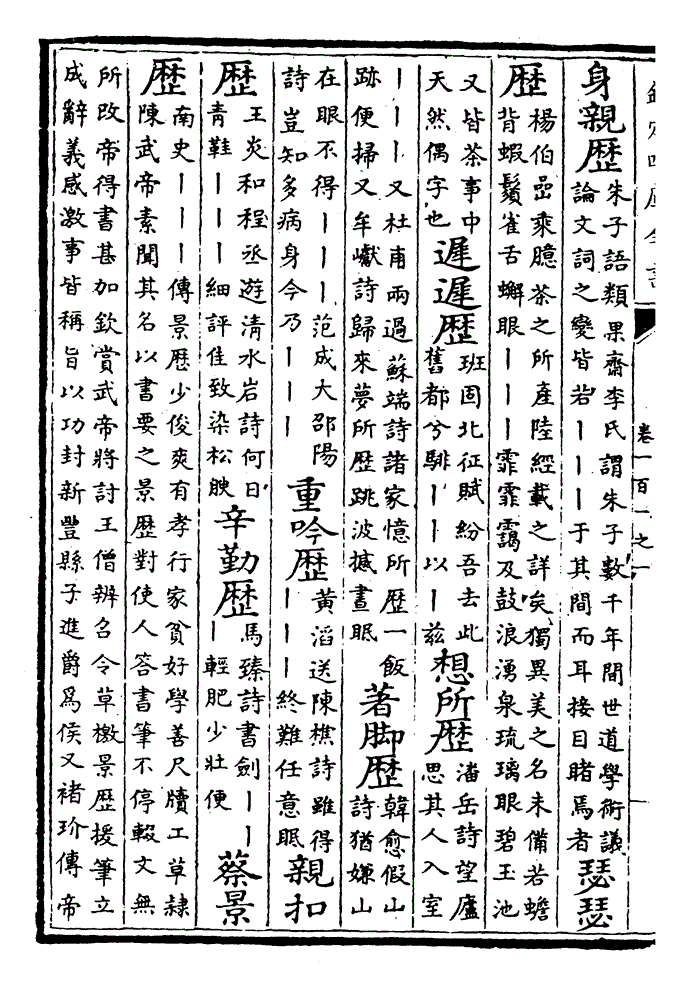 欽定四庫全書 卷一百一之一
身親歷 朱子語類果齋李氏謂朱子數千年間世道學術議
論文詞之變皆若丨丨丨于其間而耳接目睹焉者 瑟瑟
歷 楊伯嵒乘臆茶之所產陸經載之詳矣獨異美之名未備若蟾
背蝦鬚雀舌蠏眼丨丨丨霏霏靄及鼓浪湧泉琉璃眼碧玉池
又皆茶事中
天然偶字也 遲遲歷 班固北征賦紛吾去此
舊都兮騑丨丨以丨茲 想所歷 潘岳詩望廬
思其人入室
丨丨丨又杜甫兩過蘇端詩諸家憶所歷一飯
跡便掃又牟巘詩歸來夢所歷跳波撼晝眠 著脚歷 韓愈假山
詩猶嫌山
在眼不得丨丨丨范成大邵陽
詩豈知多病身今乃丨丨丨 重吟歷 黃滔送陳樵詩雖得
丨丨丨終難任意眠 親扣
歷 王炎和程丞遊清水岩詩何日
青鞋丨丨丨細評佳致染松腴 辛勤歷 馬臻詩書劍丨丨
丨輕肥少壯便 蔡景
歷 南史丨丨丨傳景歷少俊爽有孝行家貧好學善尺牘工草隸
陳武帝素聞其名以書要之景歷對使人答書筆不停輟文無
所改帝得書甚加欽賞武帝將討王僧辨召令草檄景歷援筆立
成辭義感激事皆稱旨以功封新豐縣子進爵爲侯又褚玠傳帝